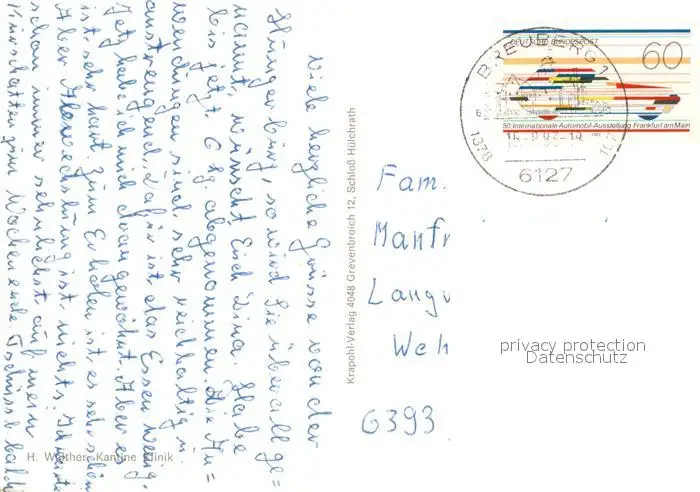 Viele herzliche Grüsse von der
Hungerburg, so wird sie überall ge=
nannt, wünscht Euch Lina. Habe
bis jetzt 6 kg abgenommen. Die An=
wendungen sind sehr reichhaltig u.
anstrengend, dafür ist das Essen wenig.
Jetzt habe ich mich drangewöhnt. Aber es
ist sehr hart. Zum Erholen ist es sehr schön
Aber Abwechslung ist nichts, Ich warte
schon immer sehnlichst auf mein
zum Wochenende. Tschüss bald
Krapohl-Verlag 4048 Grevenbroich 12, Schloß Hülchrath
H. Walther, Kantine Klinik
DEUTSCHE BUNDESPOST
60
50. Internationale Automobil-Ausstellung Frankfurt am Main
BREUBERG 1
1378
6127
Fam.
Manfr
Lang
Weh
6393
privacy protection
Datenschutz